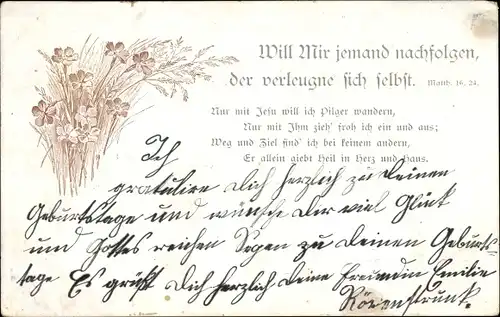 Will Mir jemand nachfolgen,
der verleugne sich selbst. Matth. 16, 24.
Nur mit Jesu will ich Pilger wandern,
Nur mit Ihm zieh' froh ich ein und aus;
Weg und Ziel find' ich bei keinem andern,
Er allein giebt Heil in Herz und Haus.
Ich
gratulire Dich herzlich zu Deinen
Geburtstage und wünsche Dir viel Glück
und Gottes reichen Segen zu Deinen Geburts
tage Es grüßt Dich herzlich Deine Freundin Emilie